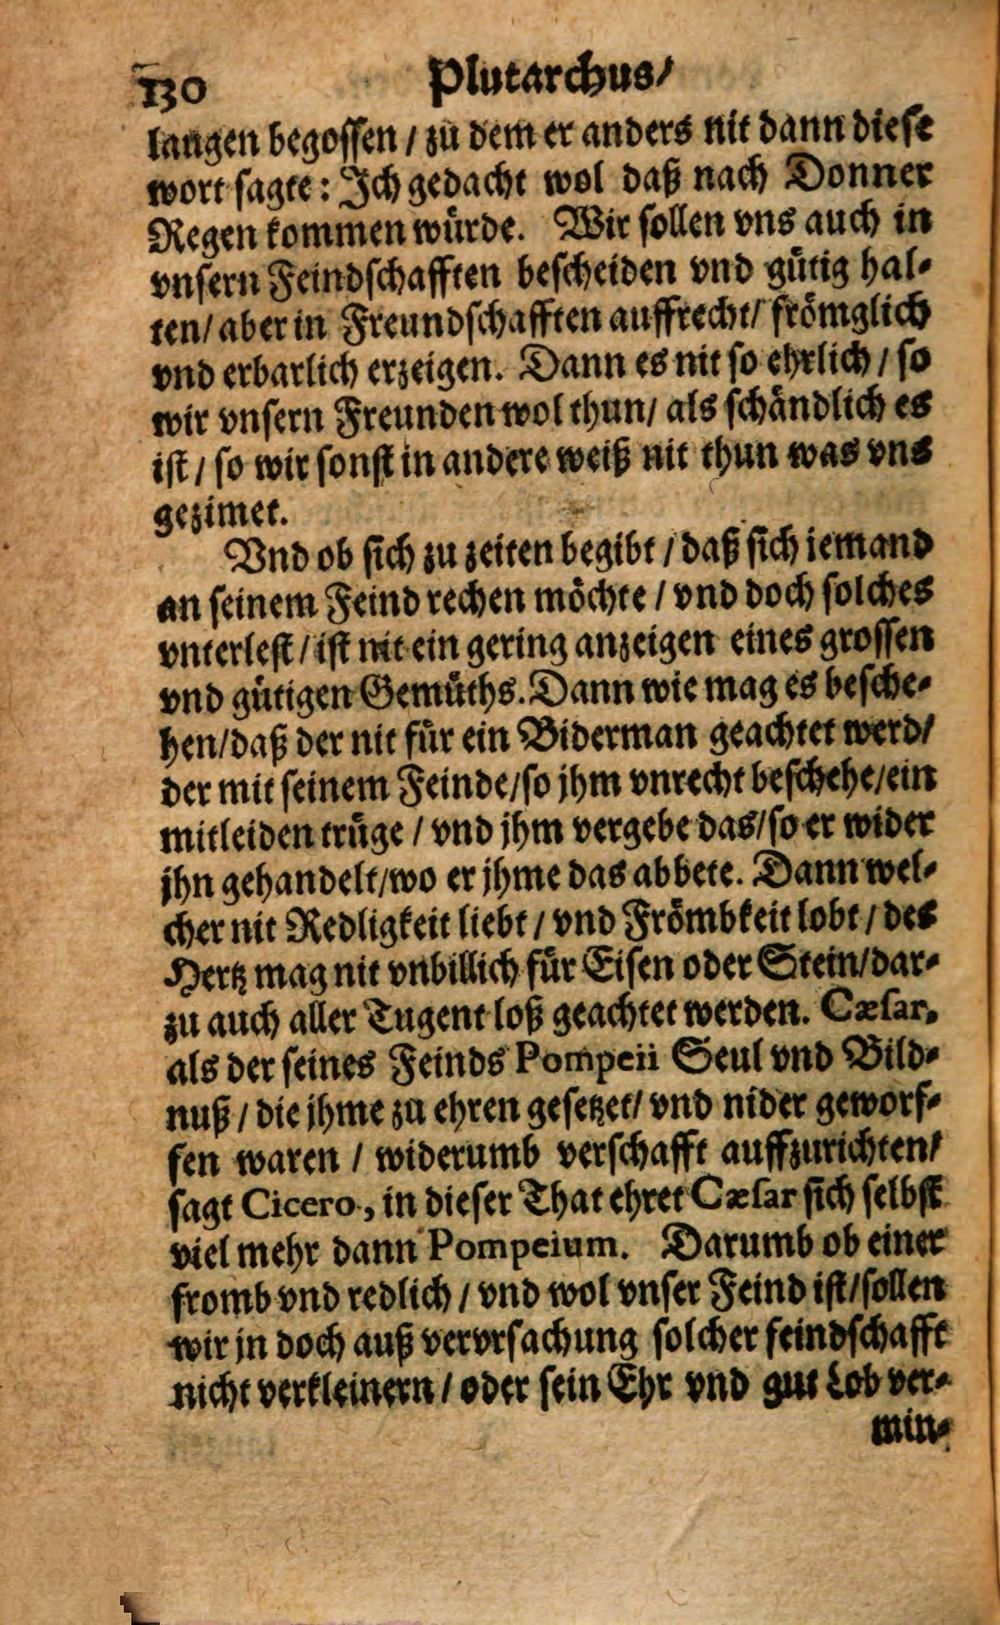 130 Plutarchus/
laugen begossen / zu dem er anders nit dann diese
wort sagte: Ich gedacht wol daß nach Donner
Regen kommen würde. Wir sollen vns auch in
vnsern Feindschafften bescheiden vnd gütig hal-
ten/ aber in Freundschafften auffrecht/ frömglich
vnd erbarlich erzeigen. Dann es nit so ehrlich / so
wir vnsern Freunden wol thun/ als schändlich es
ist / so wir sonst in andere weiß nit thun was vns
gezimet.
Vnd ob sich zu zeiten begibt / daß sich iemand
an seinem Feind rechen möchte / vnd doch solches
vnterlest / ist nit ein gering anzeigen eines grossen
vnd gütigen Gemüths. Dann wie mag es besche-
hen/daß der nit für ein Biderman geachtet werd/
der mit seinem Feinde/so jhm vnrecht beschehe/ein
mitleiden trüge / vnd jhm vergebe das/so er wider
jhn gehandelt/wo er jhme das abbete. Dann wel-
cher nit Redligkeit liebt / vnd Frömbkeit lobt / des
Hertz mag nit vnbillich für Eisen oder Stein/dar-
zu auch aller Tugent loß geachtet werden. Cæsar,
als der seines Feinds Pompeii Seul vnd Bild-
nuß / die jhme zu ehren gesetzet/ vnd nider geworf-
fen waren / widerumb verschafft auffzurichten/
sagt Cicero, in dieser That ehret Cæsar sich selbst
viel mehr dann Pompeium. Darumb ob einer
fromb vnd redlich / vnd wol vnser Feind ist/sollen
wir jn doch auß vervrsachung solcher feindschafft
nicht verkleinern / oder sein Ehr vnd gut Lob ver-
min-